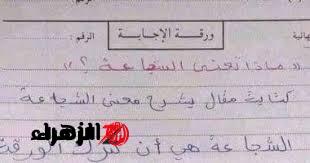 هائية) الرقم : ورقة الإجابة الرقم :
« ماذا تعني الشجاعة ؟ »
كتابة مقال يشرح معنى الشجاعة
الزهراء
الشجاعة هي أن تترك الورقة